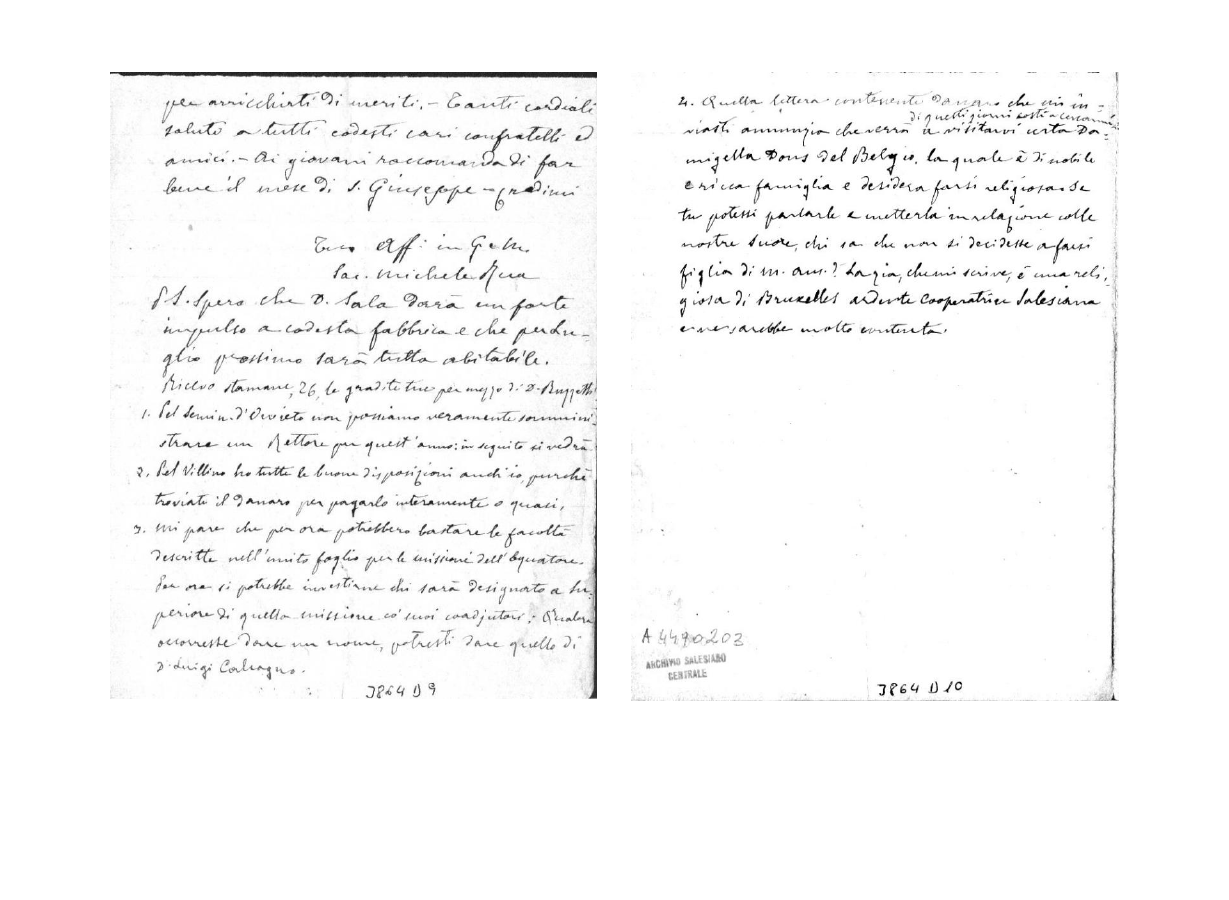 per arricchirti di meriti. - Tanti cordiali
saluti a tutti codesti cari confratelli ed
amici. - Ai giovani raccomanda di far
bene il mese di S. Giuseppe - Credimi
Tuo aff. in G. e M.
Sac. Michele Rua
P.S. Spero che D. Sala darà un forte
impulso a codesta fabbrica e che per lu-
glio prossimo sarà tutta abitabile.
Ricevo stamane, 26, le gradite tue per mezzo di D. Buzzetti
1. Pel Semin. d'Orvieto non possiamo veramente sommini-
strare un Rettore per quest'anno: in seguito si vedrà
2. Pel Villino ho tutte le buone disposizioni anch'io, purchè
troviate il danaro per pagarlo interamente o quasi.
3. Mi pare che per ora potrebbero bastare le facoltà
descritte nell'unito foglio per le missioni dell'Equatore.
Per ora si potrebbe investirne chi sarà designato a Su-
periore di quella missione co' suoi coadjutori: Qualora
occorresse dare un nome, potresti dare quello di
D. Luigi Calcagno.
3864 D 9
4. Quella lettera contenente danaro che mi in-
di questi giorni costì a
viasti annunzia che verrà a visitarvi certa Da-
migella Dons del Belgio, la quale è di nobile
e ricca famiglia e desidera farsi religiosa. Se
tu potessi parlarle e metterla in relazione colle
nostre Suore, chi sa che non si decidesse a farsi
figlia di M. Aus.? La zia, che mi scrive, è una reli-
giosa di Bruxelles ardente Cooperatrice Salesiana
e ne sarebbe molto contenta.
A 4490203
ARCHIVIO SALESIANO
CENTRALE
3864 D 10